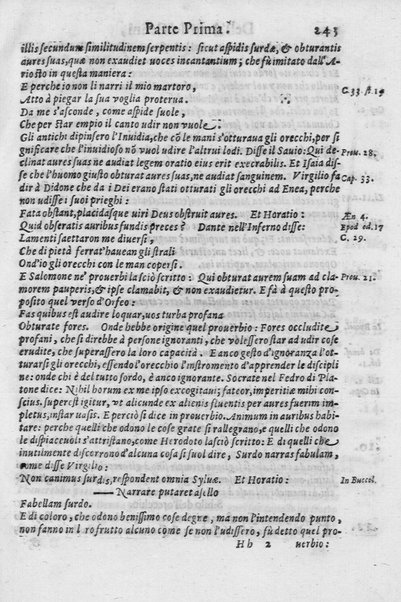 Parte Prima. 243
illis secundum similitudinem serpentis: sicut aspidis surdæ, & obturantis
aures suas, quæ non exaudiet uoces incantantium; che fù imitato dall'A-
riosto in questa maniera:
E perche io non li narri il mio martoro, C. 33. st. 19
Atto à piegar la sua voglia proterua.
Da me s'asconde, come aspide suole,
Che per star empio il canto udir non vuole.
Gli antichi dipinsero l'Inuidia, che cõ le mani s'otturaua gli orecchi, per si
gnificare che l'inuidioso nõ vuol udire l'altrui lodi. Disse il Sauio: Qui de- Prou. 28.
clinat aures suas ne audiat legem oratio eius erit execrabilis. Et Isaia dis-
se che l'huomo giusto obturat aures suas, ne audiat sanguinem. Virgilio fa Cap. 33.
dir à Didone che da i Dei erano stati otturati gli orecchi ad Enea, perche
non udisse i suoi prieghi:
Fata obstant, placidasque uiri Deus obstruit aures. Et Horatio: Æn 4.
Quid obseratis auribus fundis preces? Dante nell'Inferno disse: Epod od. 17
Lamenti saettaron me diuersi, C. 29.
Che di pietà ferrat' haueangli strali
Ond'io gli orecchi con le man copersi.
E Salomone ne' prouerbi lasciò scritto: Qui obturat aurem suam ad cla- Prou. 21.
morem pauperis, & ipse clamabit, & non exaudietur. E fà à questo pro-
posito quel verso d'Orfeo:
Fas quibus est audire loquar, uos turba profana
Obturate fores. Onde hebbe origine quel prouerbio: Fores occludite
profani, che si direbbe à persone ignoranti, che volessero star ad udir cose
erudite, che superassero la loro capacità. E anco gesto d'ignoranza l'ot-
turarsi gli orecchi, essendo l'orecchio l'instromento d'apprender le discipli
ne: onde chi è del tutto sordo, è anco ignorante. Socrate nel Fedro di Pla-
tone dice: Nihil horum ex me ipso excogitaui; fateor, imperitiæ mihi con-
scius. superest igitur, vt aliunde ex alienis fluentis per aures fuerim im-
pletus, instar uasis. E perciò si dice in prouerbio. Animum in auribus habi-
tare: perche quelli che odono le cose grate si rallegrano, e quelli che odono
le dispiaceuoli s'attristano, come Herodoto lasciò scritto: E di quelli che
inutilmente discorrono d'alcuna cosa si suol dire, Surdo narras fabulam,
come disse Virgilio:
Non canimus surdis, respondent omnia Syluæ. Et Horatio: In Buccol.
—— Narrare putaret asello
Fabellam surdo.
E di coloro, che odono benissimo cose degne, ma non l'intendendo punto,
non fanno in lor frutto alcuno come se non l'udissero, fù detto quel pro-
Hh 2 uerbio: